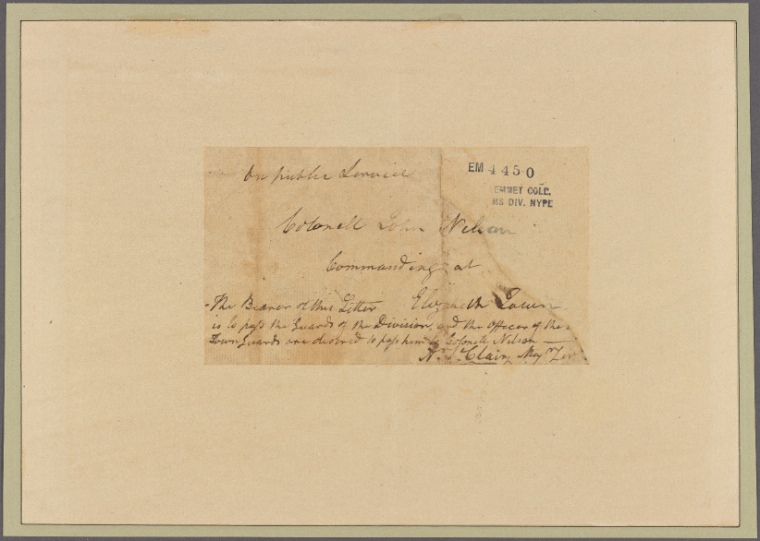 On public Service
EM 4450
EMMET COLL.
MS DIV. NYPL
Colonell John Nelson
Commanding at
Elizabeth Town
The Bearer of this Letter
is to pass the Guards of the Division, and the Officer of the
Town Guards are desired to pass him to Colonell Nelson
Ar. St. Clair, Maj Gen